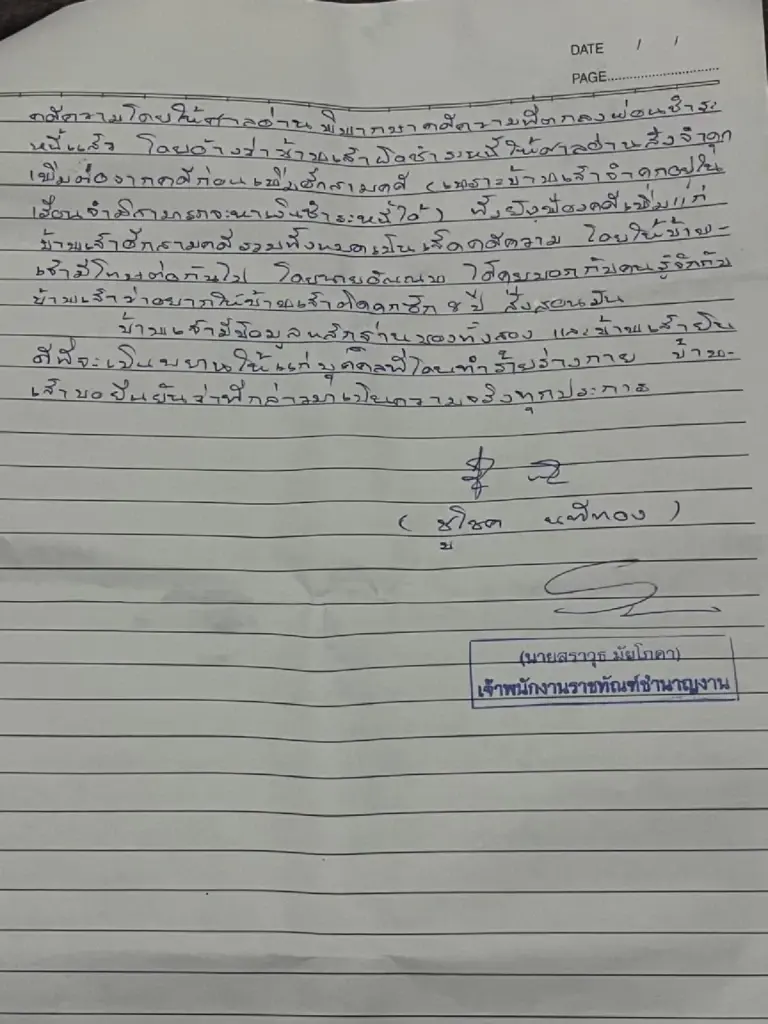 DATE / /
PAGE
คดีความโดยให้ศาลอ่านพิพากษาคดีความที่ตกลงผ่อนชำระ
หนี้แล้ว โดยอ้างว่าข้าพเจ้าผิดชำระหนี้ให้ศาลอ่านสั่งจำคุก
เพิ่มต่อจากคดีก่อนเพิ่มอีกสามคดี (เพราะข้าพเจ้าจำคุกอยู่ใน
เรือนจำมิสามารถจะหาเงินชำระหนี้ได้) ทั้งยังฟ้องคดีเพิ่มแก่
ข้าพเจ้าอีกสามคดีรวมทั้งหมดเป็นเจ็ดคดีความ โดยให้ข้าพ-
เจ้ามีโทษต่อกันไป โดยนาย ได้เคยบอกกับคนรู้จักกับ
ข้าพเจ้าว่าอยากให้ข้าพเจ้าติดคุกซัก ๘ ปี สั่งสอนมัน
ข้าพเจ้ามีข้อมูลหลักฐานของทั้งสอง และข้าพเจ้ายิน
ดีที่จะเป็นพยานให้แก่บุคคลที่โดนทำร้ายร่างกาย ข้าพ-
เจ้าขอยืนยันว่าที่กล่าวมาเป็นความจริงทุกประการ
( ชูโชค )
(นายสราวุธ มัยโภคา)
เจ้าพนักงานราชทัณฑ์ชำนาญงาน